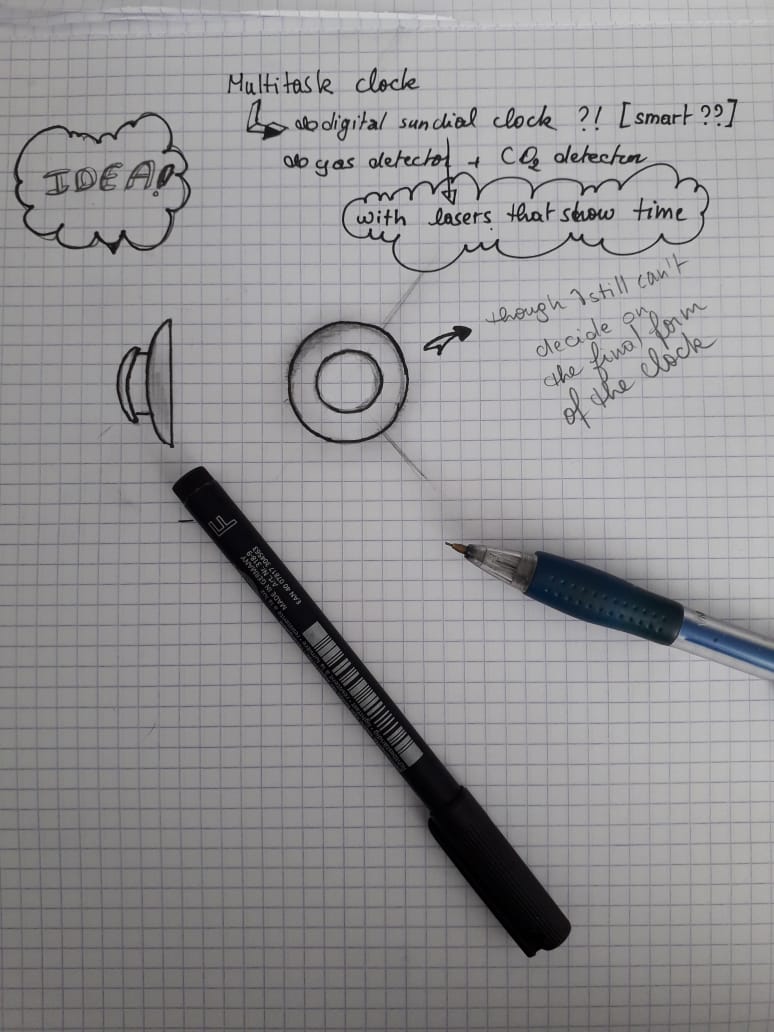 Multitask clock
digital sundial clock ?! [smart ??]
gas detector + CO2 detector
with lasers that show time
IDEA!
though I still can't
decide on
the final form
of the clock
F
MADE IN GERMANY
ART. Nr. 318-9